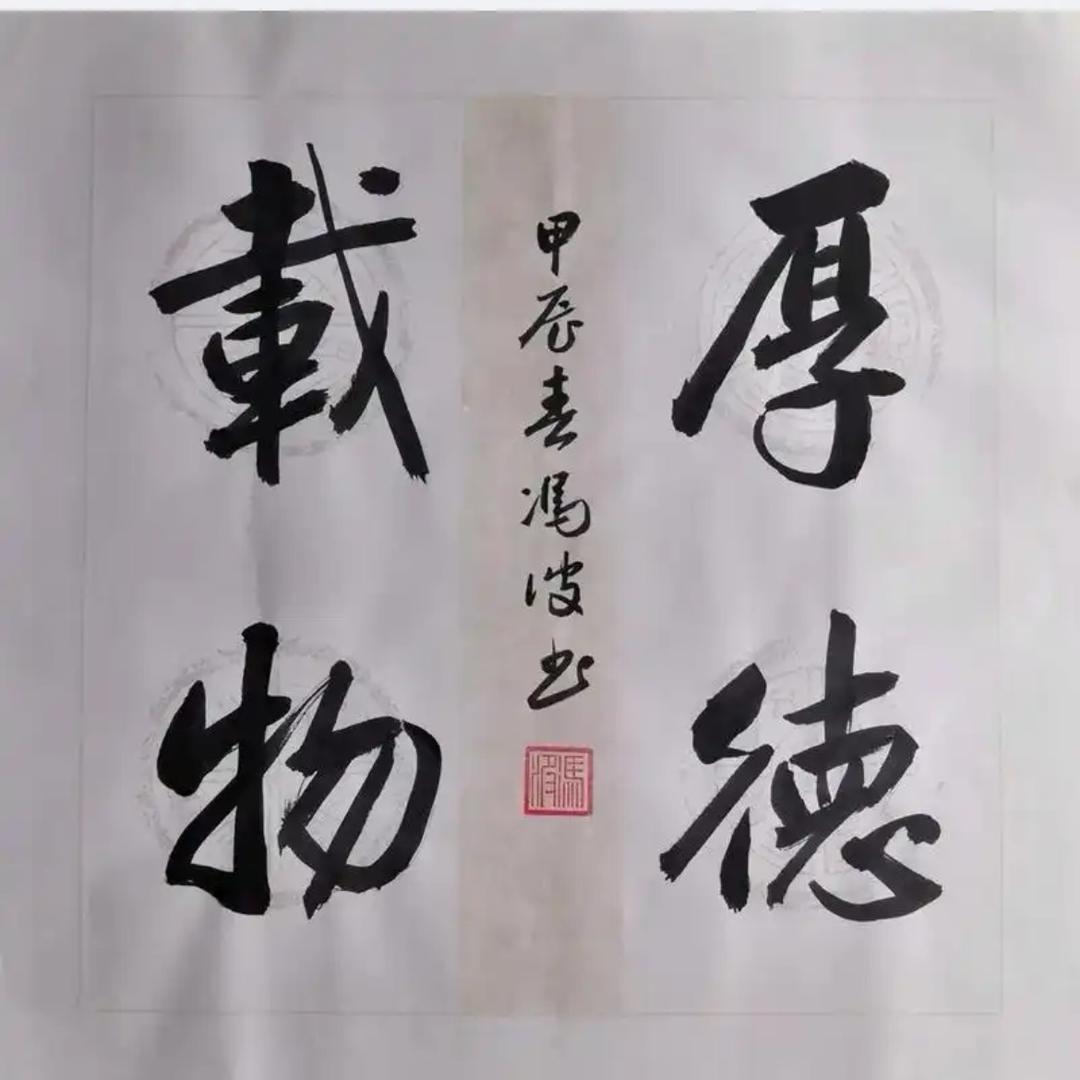 厚德
載物
甲辰春馮波书
馮波